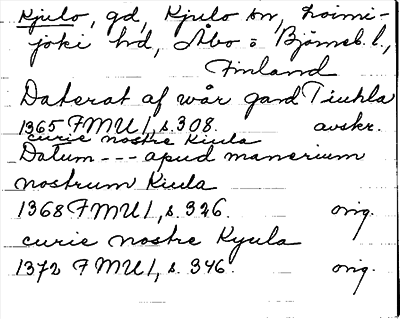 Kjulo, gd, Kjulo sn, Loimi-
joki hd, Åbo o Björneb. l.,
Finland
Daterat af wår gard Tiuhla
1365 FMU 1, s. 308. avskr.
curie nostre Kiula
Datum --- apud manerium
nostrum Kiula
1368 FMU 1, s. 326. orig.
curie nostre Kyula
1372 FMU 1, s. 346. orig.